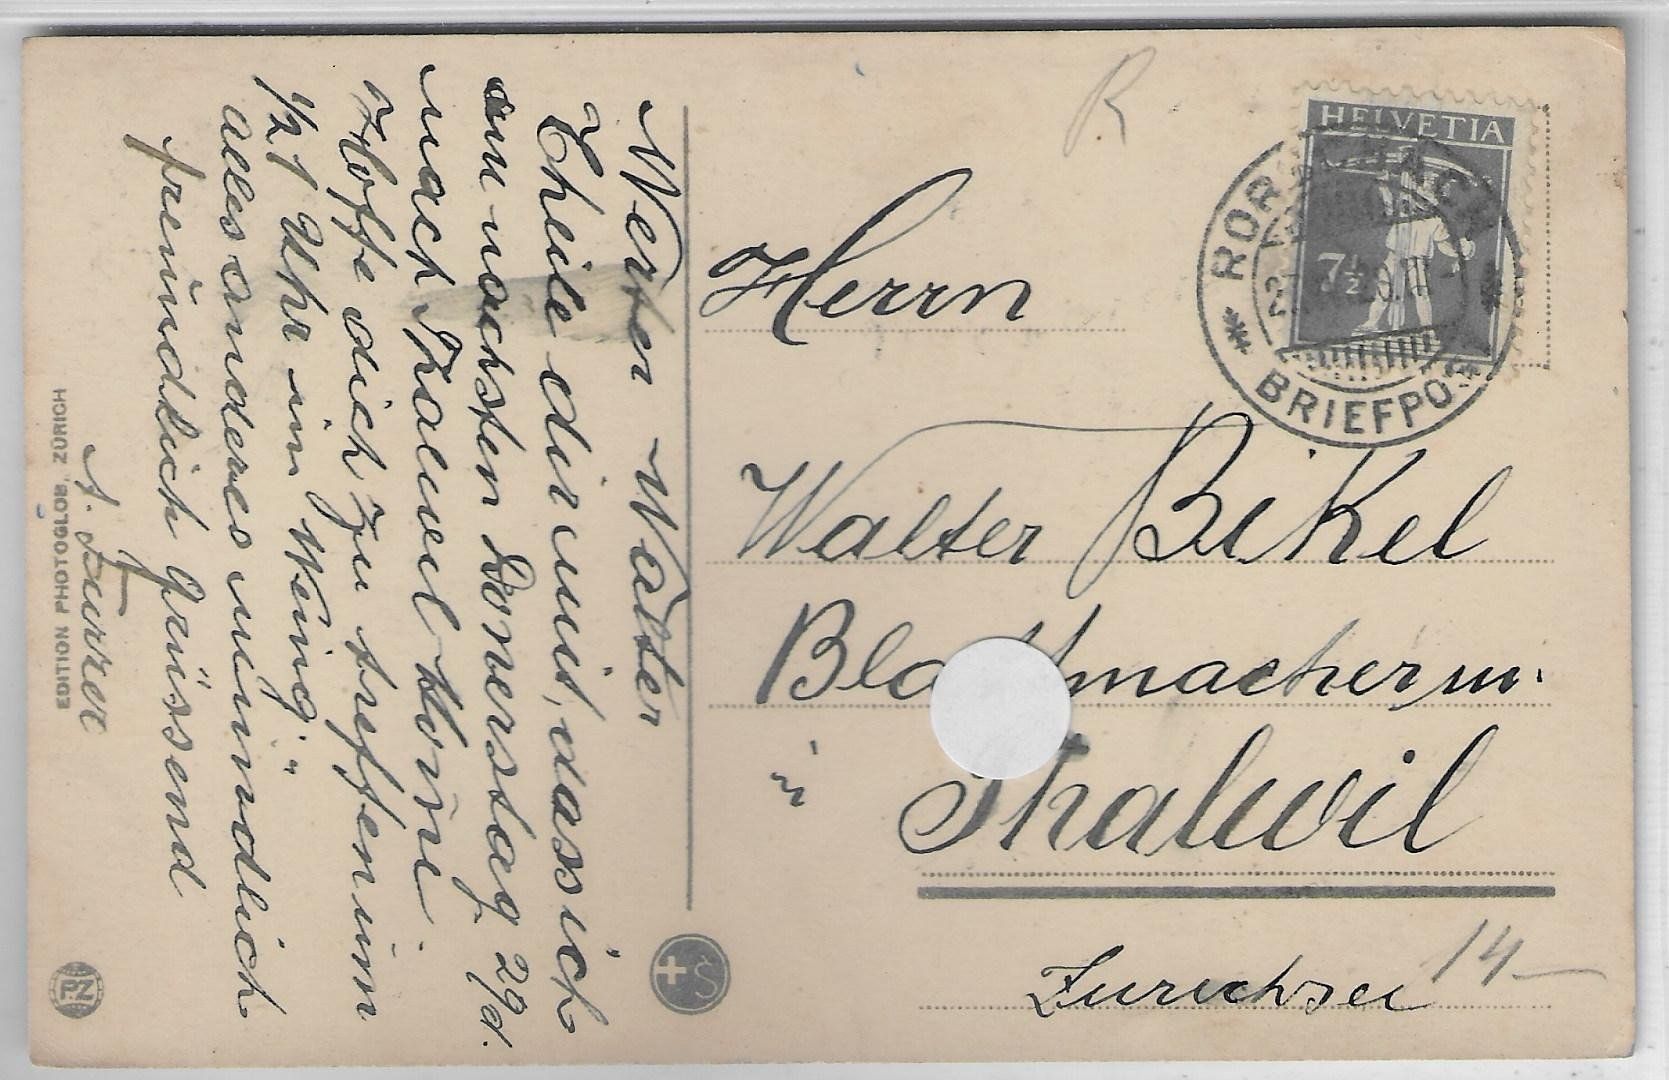 Werter Walter
Theile dir mit, dass ich
am nächsten Donerstag 29/d.
nach Thalwil kome
Hoffe dich zu treffen um
1/2 1 Uhr im
alles anderes mündlich
freundlich grüssend
A. Furrer
EDITION PHOTOGLOB, ZÜRICH
PZ
R
HELVETIA
7½
BRIEFPOST
Herrn
Walter Bikel
in
Thalwil
Zurichsee
14